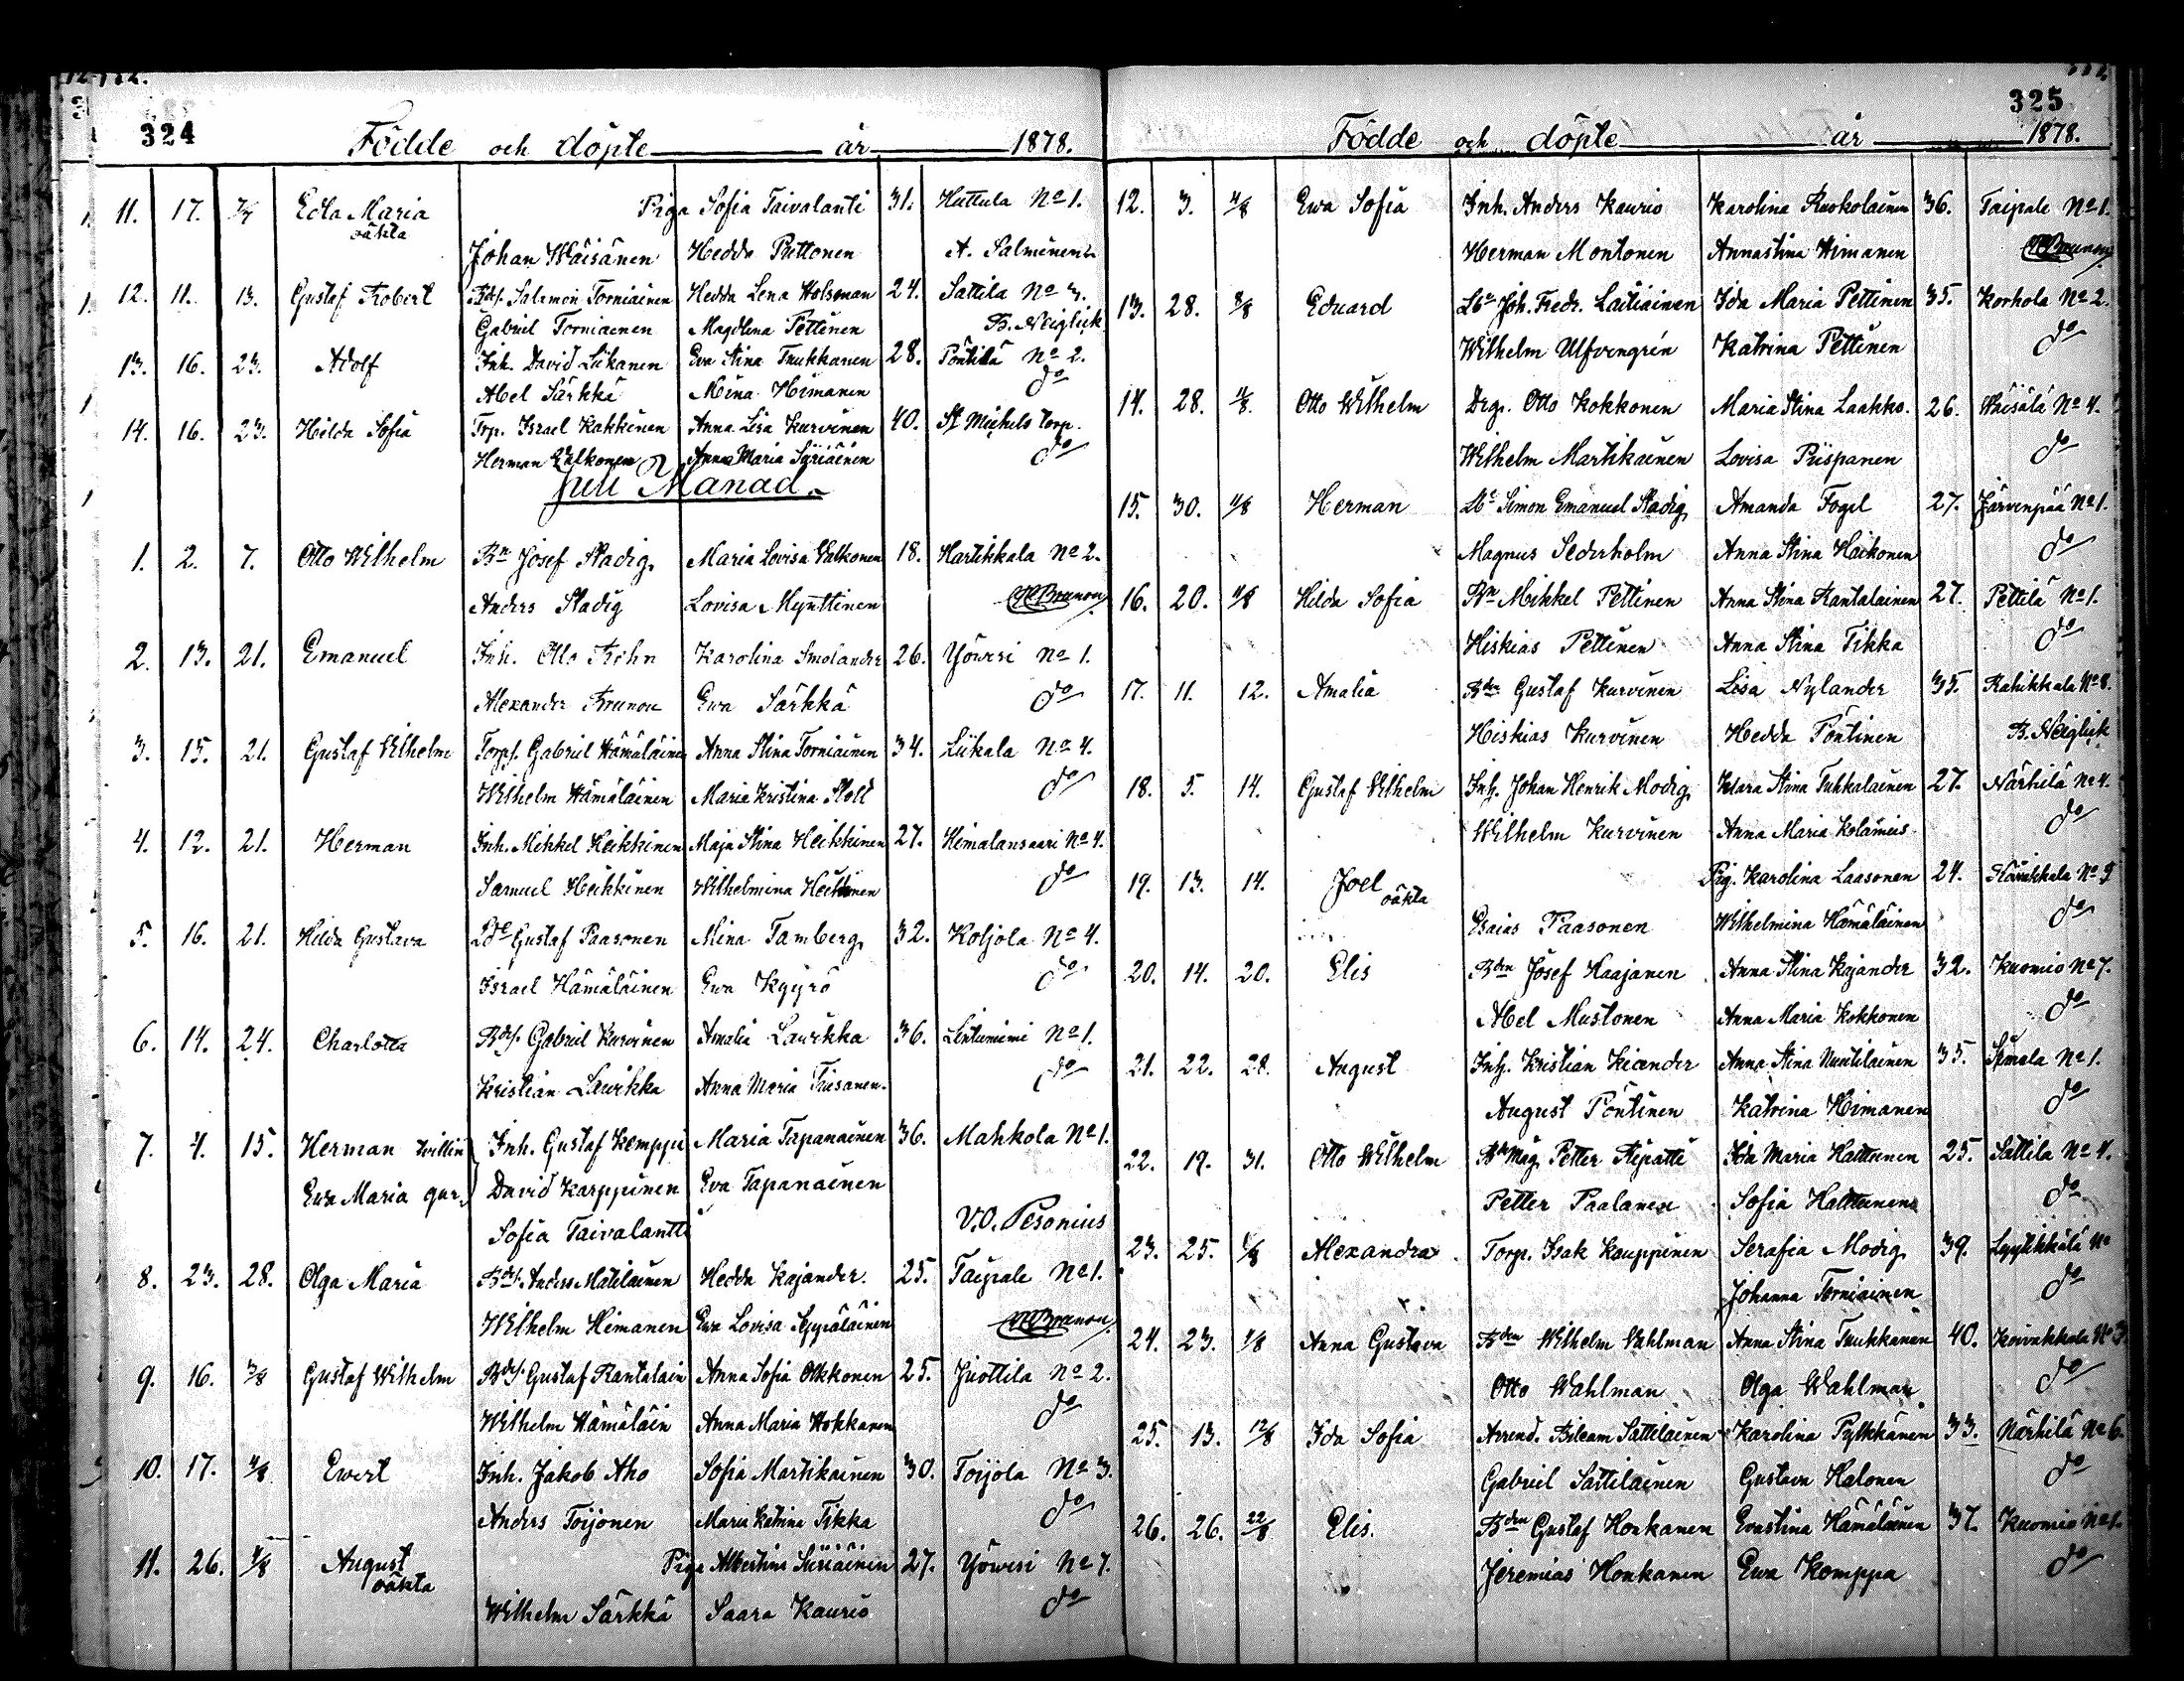 324
Födde och döpte år 1878.
11. 17. 7/7 Edla Maria Piga Sofia Taivalanti 31. Huttula No 1.
oäkta
Johan Wäisänen Hedda Puttonen A. Salminen
12. 11. 13. Gustaf Robert Bdsf. Salamon Torniainen Hedda Lena Holsman 24. Sattila No 3.
Gabriel Torniainen Magdlena Pettinen B. Neiglick
13. 16. 23. Adolf Inh. David Liikanen Eva Stina Tnukkanen 28. Pöntilä No 2.
Abel Särkkä Mina Himanen do
14. 16. 23. Hilda Sofia Torp. Israel Kakkinen Anna Lisa Kurvinen 40. St Michels torp.
Herman Valkonen Anna Maria Syriäinen do
Juli Månad.
1. 2. 7. Otto Wilhelm Bn Josef Stadig Maria Lovisa Valkonen 18. Hartikkala No 2.
Anders Stadig Lovisa Mynttinen Brunou
2. 13. 21. Emanuel Inh. Otto Frihn Karolina Smolander 26. Yövesi No 1.
Alexander Brunou Ewa Särkkä do
3. 15. 21. Gustaf Wilhelm Torpf. Gabriel Hämäläinen Anna Stina Torniainen 34. Liikala No 4.
Wilhelm Hämäläinen Maria Kristina Stoll do
4. 12. 21. Herman Inh. Mikkel Heikkinen Maja Stina Heikkinen 27. Himalansaari No 4.
Samuel Heikkinen Wilhelmina Heikkinen do
5. 16. 21. Hilda Gustava Gustaf Paasonen Mina Tamberg 32. Koljola No 4.
Israel Hämäläinen Ewa Kyyrö do
6. 14. 24. Charlotta Bdsf. Gabriel Kurvinen Amalia Laurikka 36. Lintuniemi No 1.
Kristian Laurikka Anna Maria Triisanen. do
7. 4. 15. Herman tvillin Inh. Gustaf Kemppi Maria Tapanainen 36. Mahkola No 1.
Ewa Maria gar. David Karppinen Eva Tapanainen
Sofia Taivalantti V.O. Pesonius
8. 23. 28. Olga Maria Bdsf. Anders Matilainen Hedda Kajander. 25. Taipale No 1.
Wilhelm Himanen Ewa Lovisa Seppäläinen Brunou
9. 16. 3/8 Gustaf Wilhelm Bdsf. Gustaf Rantalain Anna Sofia Olkkonen 25. Juottila No 2.
Wilhelm Hämäläin Anna Maria Hokkanen do
10. 17. 4/8 Ewert Inh. Jakob Aho Sofia Martikainen 30. Toijola No 3.
Anders Toijonen Maria Katrina Tikka do
11. 26. 4/8 August Piga Albertina Siiriäinen 27. Yövesi No 7.
oäkta
Wilhelm Särkkä Saara Kaurio do
325
Födde och döpte år 1878.
12. 3. 4/8 Ewa Sofia Inh. Anders Kaurio Karolina Ruokolainen 36. Taipale No 1.
Herman Montonen Annastina Himanen Brunou
13. 28. 8/8 Eduard Joh. Fredr. Laitiainen Ida Maria Pettinen 35. Korhola No 2.
Wilhelm Ulfvengrén Katrina Pettinen do
14. 28. 11/8. Otto Wilhelm Drg. Otto Kokkonen Maria Stina Laakko. 26. Väisälä No 4.
Wilhelm Martikainen Lovisa Piispanen do
15. 30. 11/8 Herman Simon Emanuel Stadig Amanda Fogel 27. Järvenpää No 1.
Magnus Sederholm Anna Stina Haikonen do
16. 20. 11/8 Hilda Sofia Bn Mikkel Pettinen Anna Stina Rantalainen 27. Pettilä No 1.
Hiskias Pettinen Anna Stina Tikka do
17. 11. 12. Amalia Bden Gustaf Kurvinen Lisa Nylander 35. Rahikkala No 8.
Hiskias Kurvinen Hedda Pöntinen B. Neiglick
18. 5. 14. Gustaf Wilhelm Inh. Johan Henrik Modig Klara Stina Tuhkalainen 27. Närhilä No 4.
Wilhelm Kurvinen Anna Maria Kolämies do
19. 13. 14. Joel Pig. Karolina Laasonen 24.
oäkta
Esaias Paasonen Wilhelmina Hämäläinen do
20. 14. 20. Elis Bden Josef Haajanen Anna Stina Kajander 32. Kuomio No 7.
Abel Mustonen Anna Maria Kokkonen do
21. 22. 28. August Inh. Kristian Kiander Anna Stina Nuutilainen 35. Simala No 1.
August Pöntinen Katrina Himanen do
22. 19. 31. Otto Wilhelm Petter Ripatti Ida Maria Hattunen 25. Sattila No 4.
Petter Paalanen Sofia Hattunen do
23. 25. 1/8 Alexandra Torp. Isak Kauppinen Serafia Modig 39. Lyytikkälä No
Johanna Torniainen do
24. 23. 1/8 Anna Gustava Bden Wilhelm Wahlman Anna Stina Tnukkanen 40. Koivakkala No 3.
Otto Wahlman Olga Wahlman do
25. 13. 12/8 Ida Sofia Arrend. Bileam Sattilainen Karolina Pylkkänen 33. Närhilä No 6.
Gabriel Sattilainen Gustava Halonen do
26. 26. 22/8 Elis. Bden Gustaf Honkanen Evastina Hämäläinen 37. Kuomio No 1.
Jeremias Honkanen Ewa Komppa do